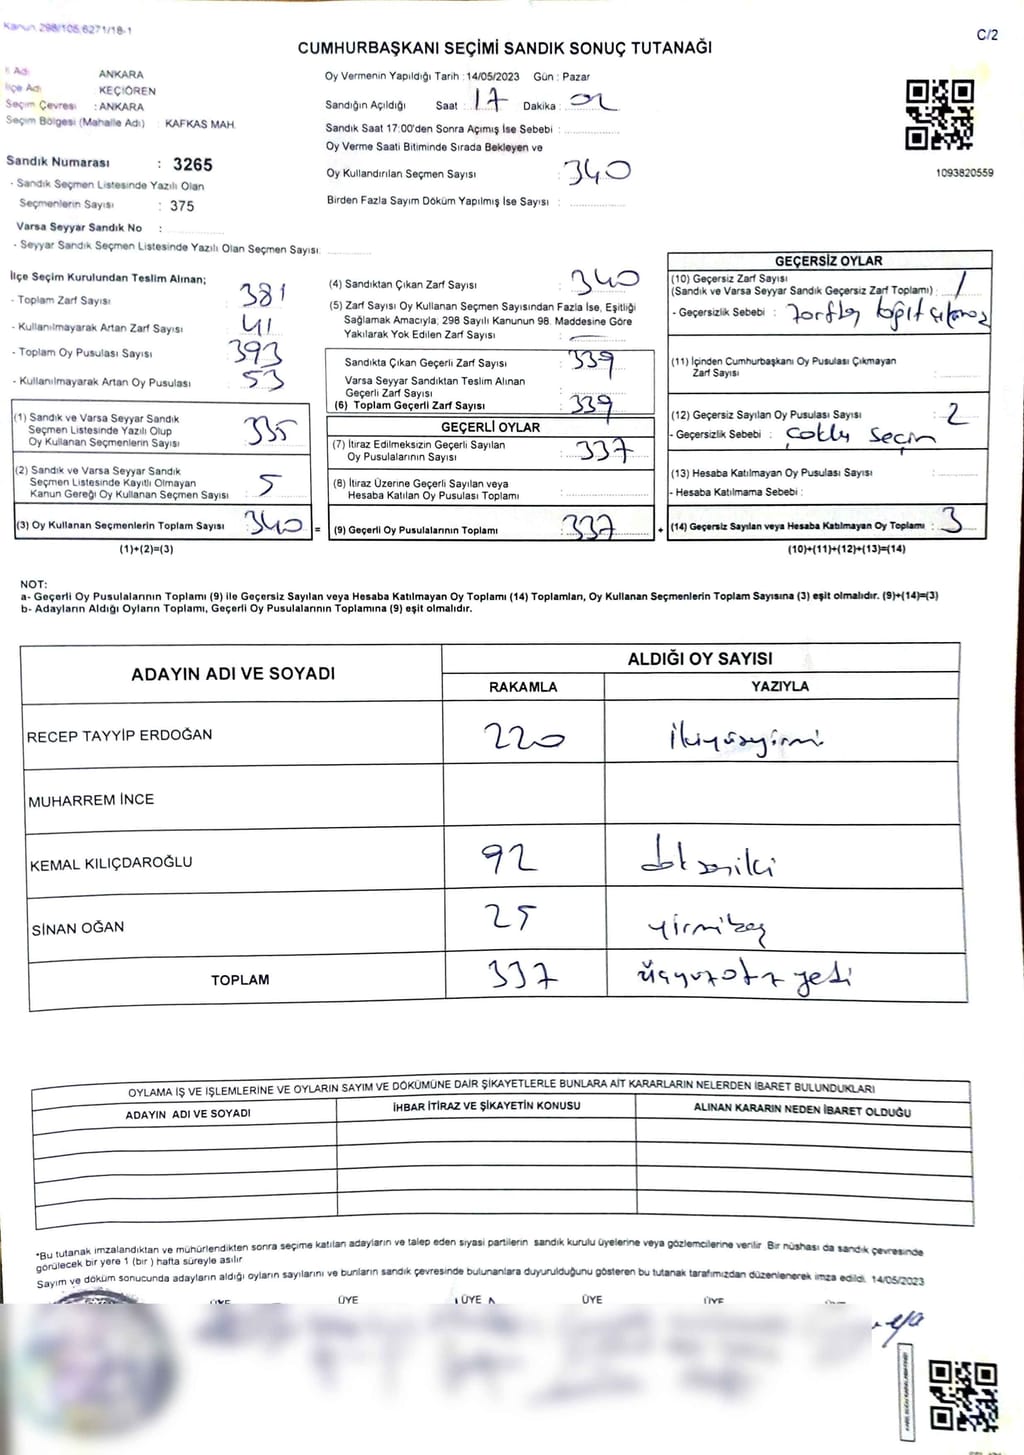 Kanun 298/105,6271/18-1
C/2
CUMHURBAŞKANI SEÇİMİ SANDIK SONUÇ TUTANAĞI
İl Adı ANKARA
İlçe Adı : KEÇİÖREN
Seçim Çevresi : ANKARA
Seçim Bölgesi (Mahalle Adı) : KAFKAS MAH.
Sandık Numarası : 3265
- Sandık Seçmen Listesinde Yazılı Olan
Seçmenlerin Sayısı : 375
Varsa Seyyar Sandık No :
- Seyyar Sandık Seçmen Listesinde Yazılı Olan Seçmen Sayısı:
Oy Vermenin Yapıldığı Tarih : 14/05/2023 Gün : Pazar
Sandığın Açıldığı Saat : 17 Dakika :
Sandık Saat 17:00'den Sonra Açımış İse Sebebi :
Oy Verme Saati Bitiminde Sırada Bekleyen ve
Oy Kullandırılan Seçmen Sayısı : 340
Birden Fazla Sayım Döküm Yapılmış İse Sayısı :
1093820559
İlçe Seçim Kurulundan Teslim Alınan;
- Toplam Zarf Sayısı : 381
- Kullanılmayarak Artan Zarf Sayısı : 41
- Toplam Oy Pusulası Sayısı : 393
- Kullanılmayarak Artan Oy Pusulası : 53
(1) Sandık ve Varsa Seyyar Sandık
Seçmen Listesinde Yazılı Olup
Oy Kullanan Seçmenlerin Sayısı : 335
(2) Sandık ve Varsa Seyyar Sandık
Seçmen Listesinde Kayıtlı Olmayan
Kanun Gereği Oy Kullanan Seçmen Sayısı : 5
(3) Oy Kullanan Seçmenlerin Toplam Sayısı : 340 =
(1)+(2)=(3)
(4) Sandıktan Çıkan Zarf Sayısı : 340
(5) Zarf Sayısı Oy Kullanan Seçmen Sayısından Fazla İse, Eşitliği
Sağlamak Amacıyla; 298 Sayılı Kanunun 98. Maddesine Göre
Yakılarak Yok Edilen Zarf Sayısı :
Sandıkta Çıkan Geçerli Zarf Sayısı : 339
Varsa Seyyar Sandıktan Teslim Alınan
Geçerli Zarf Sayısı :
(6) Toplam Geçerli Zarf Sayısı : 339
GEÇERLİ OYLAR
(7) İtiraz Edilmeksizin Geçerli Sayılan
Oy Pusulalarının Sayısı : 337
(8) İtiraz Üzerine Geçerli Sayılan veya
Hesaba Katılan Oy Pusulası Toplamı :
(9) Geçerli Oy Pusulalarının Toplamı : 337 +
GEÇERSİZ OYLAR
(10) Geçersiz Zarf Sayısı
(Sandık ve Varsa Seyyar Sandık Geçersiz Zarf Toplamı) : 1
- Geçersizlik Sebebi :
(11) İçinden Cumhurbaşkanı Oy Pusulası Çıkmayan
Zarf Sayısı :
(12) Geçersiz Sayılan Oy Pusulası Sayısı : 2
- Geçersizlik Sebebi : çoklu seçim
(13) Hesaba Katılmayan Oy Pusulası Sayısı :
- Hesaba Katılmama Sebebi :
(14) Geçersiz Sayılan veya Hesaba Katılmayan Oy Toplamı : 3
(10)+(11)+(12)+(13)=(14)
NOT:
a- Geçerli Oy Pusulalarının Toplamı (9) ile Geçersiz Sayılan veya Hesaba Katılmayan Oy Toplamı (14) Toplamları, Oy Kullanan Seçmenlerin Toplam Sayısına (3) eşit olmalıdır. (9)+(14)=(3)
b- Adayların Aldığı Oyların Toplamı, Geçerli Oy Pusulalarının Toplamına (9) eşit olmalıdır.
ADAYIN ADI VE SOYADI ALDIĞI OY SAYISI
RAKAMLA YAZIYLA
RECEP TAYYİP ERDOĞAN 220 ikiyüzyirmi
MUHARREM İNCE
KEMAL KILIÇDAROĞLU 92 doksaniki
SİNAN OĞAN 25 yirmibeş
TOPLAM 337 üçyüzotuz yedi
OYLAMA İŞ VE İŞLEMLERİNE VE OYLARIN SAYIM VE DÖKÜMÜNE DAİR ŞİKAYETLERLE BUNLARA AİT KARARLARIN NELERDEN İBARET BULUNDUKLARI
ADAYIN ADI VE SOYADI İHBAR İTİRAZ VE ŞİKAYETİN KONUSU ALINAN KARARIN NEDEN İBARET OLDUĞU
*Bu tutanak imzalandıktan ve mühürlendikten sonra seçime katılan adayların ve talep eden siyasi partilerin sandık kurulu üyelerine veya gözlemcilerine verilir. Bir nüshası da sandık çevresinde
görülecek bir yere 1 (bir ) hafta süreyle asılır
Sayım ve döküm sonucunda adayların aldığı oyların sayılarını ve bunların sandık çevresinde bulunanlara duyurulduğunu gösteren bu tutanak tarafımızdan düzenlenerek imza edildi. 14/05/2023
ÜYE ÜYE ÜYE ÜYE ÜYE